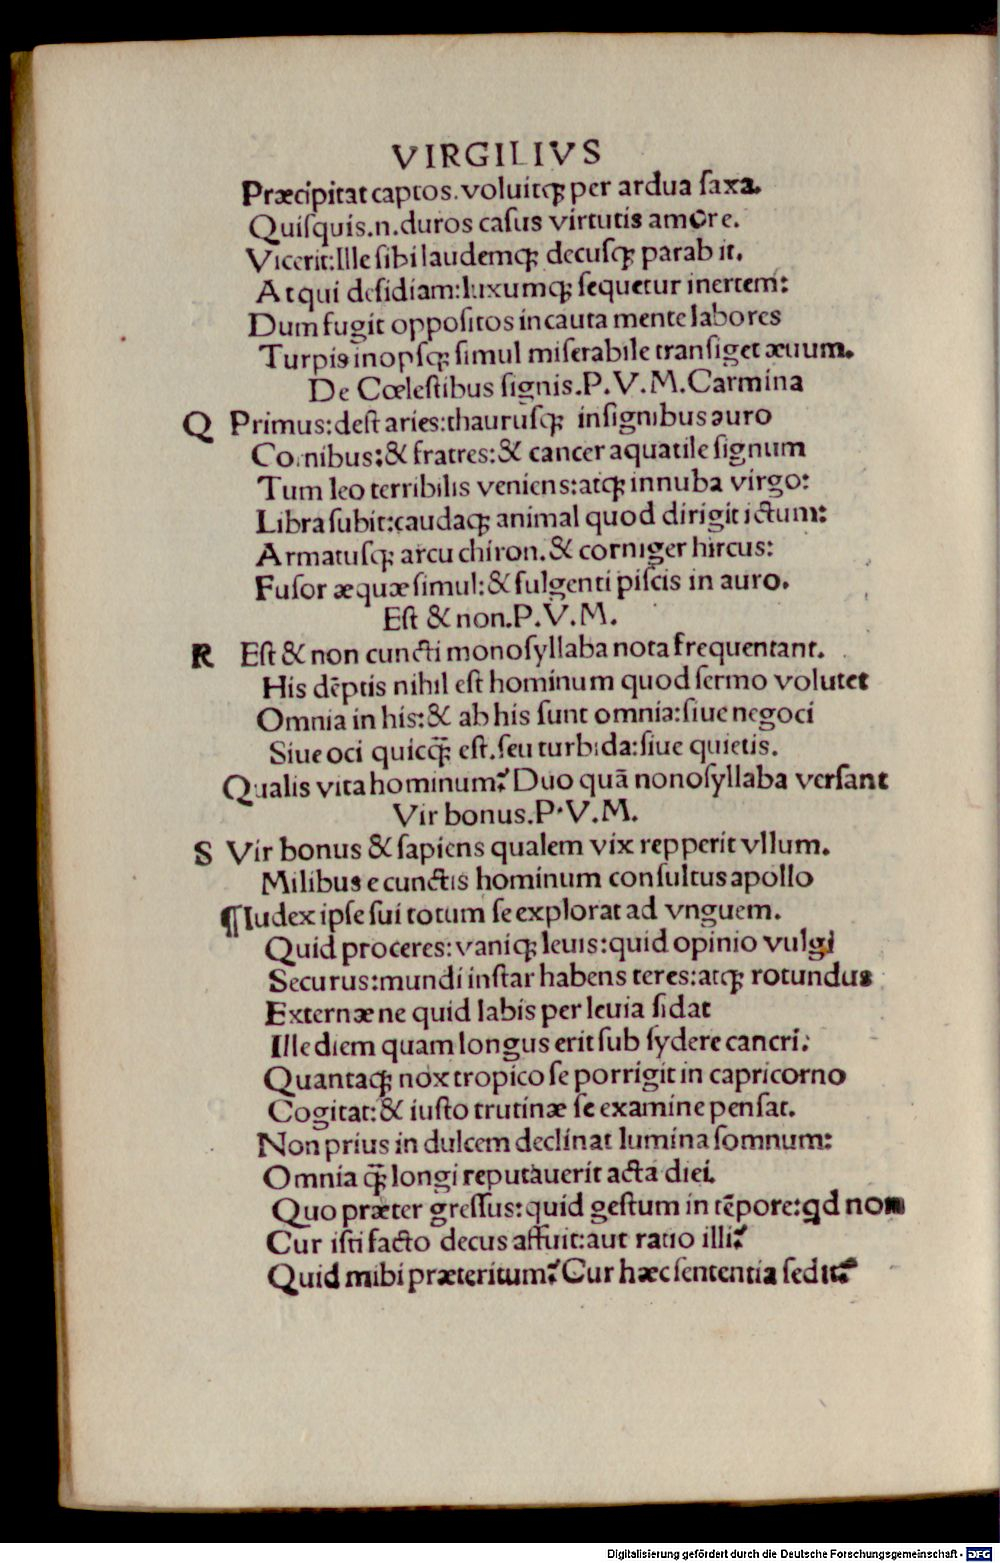 VIRGILIVS
Præcipitat captos.voluitqꝫ per ardua ſaxa.
Quiſquis.n.duros caſus virtutis amore.
Vicerit:Ille ſibi laudemqꝫ decuſqꝫ parab it.
Atqui deſidiam:luxumqꝫ ſequetur inertem:
Dum fugit oppoſitos incauta mente labores
Turpis inopſqꝫ ſimul miſerabile tranſiget æuum.
De Cœleſtibus ſignis.P.V.M.Carmina
Q Primus:deſt aries:thauruſqꝫ inſignibus auro
Cornibus:& fratres:& cancer aquatile ſignum
Tum leo terribilis veniens:atqꝫ innuba virgo:
Libra ſubit:caudaqꝫ animal quod dirigit ictum:
Armatuſqꝫ arcu chiron.& corniger hircus:
Fuſor æquæ ſimul:& fulgenti piſcis in auro.
Eſt & non.P.V.M.
R Eſt & non cuncti monoſyllaba nota frequentant.
His dēptis nihil eſt hominum quod ſermo volutet
Omnia in his:& ab his ſunt omnia:ſiue negoci
Siue oci quicq̄ꝫ eſt.ſeu turbida:ſiue quietis.
Qualis vita hominum? Duo quā nonoſyllaba verſant
Vir bonus.P.V.M.
S Vir bonus & ſapiens qualem vix repperit vllum.
Milibus e cunctis hominum conſultus apollo
¶Iudex ipſe ſui totum ſe explorat ad vnguem.
Quid proceres:vaniqꝫ leuis:quid opinio vulgi
Securus:mundi inſtar habens teres:atqꝫ rotundus
Externæ ne quid labis per leuia ſidat
Ille diem quam longus erit ſub ſydere cancri:
Quantaqꝫ nox tropico ſe porrigit in capricorno
Cogitat:& iuſto trutinæ ſe examine penſat.
Non prius in dulcem declinat lumina ſomnum:
Omnia q̄ꝫ longi reputauerit acta diei.
Quo præter greſſus:quid geſtum in tēpore:qd non
Cur iſti facto decus affuit:aut ratio illi?
Quid mihi præteritum? Cur hæc ſententia ſedit?
Digitalisierung gefördert durch die Deutsche Forschungsgemeinschaft - DFG